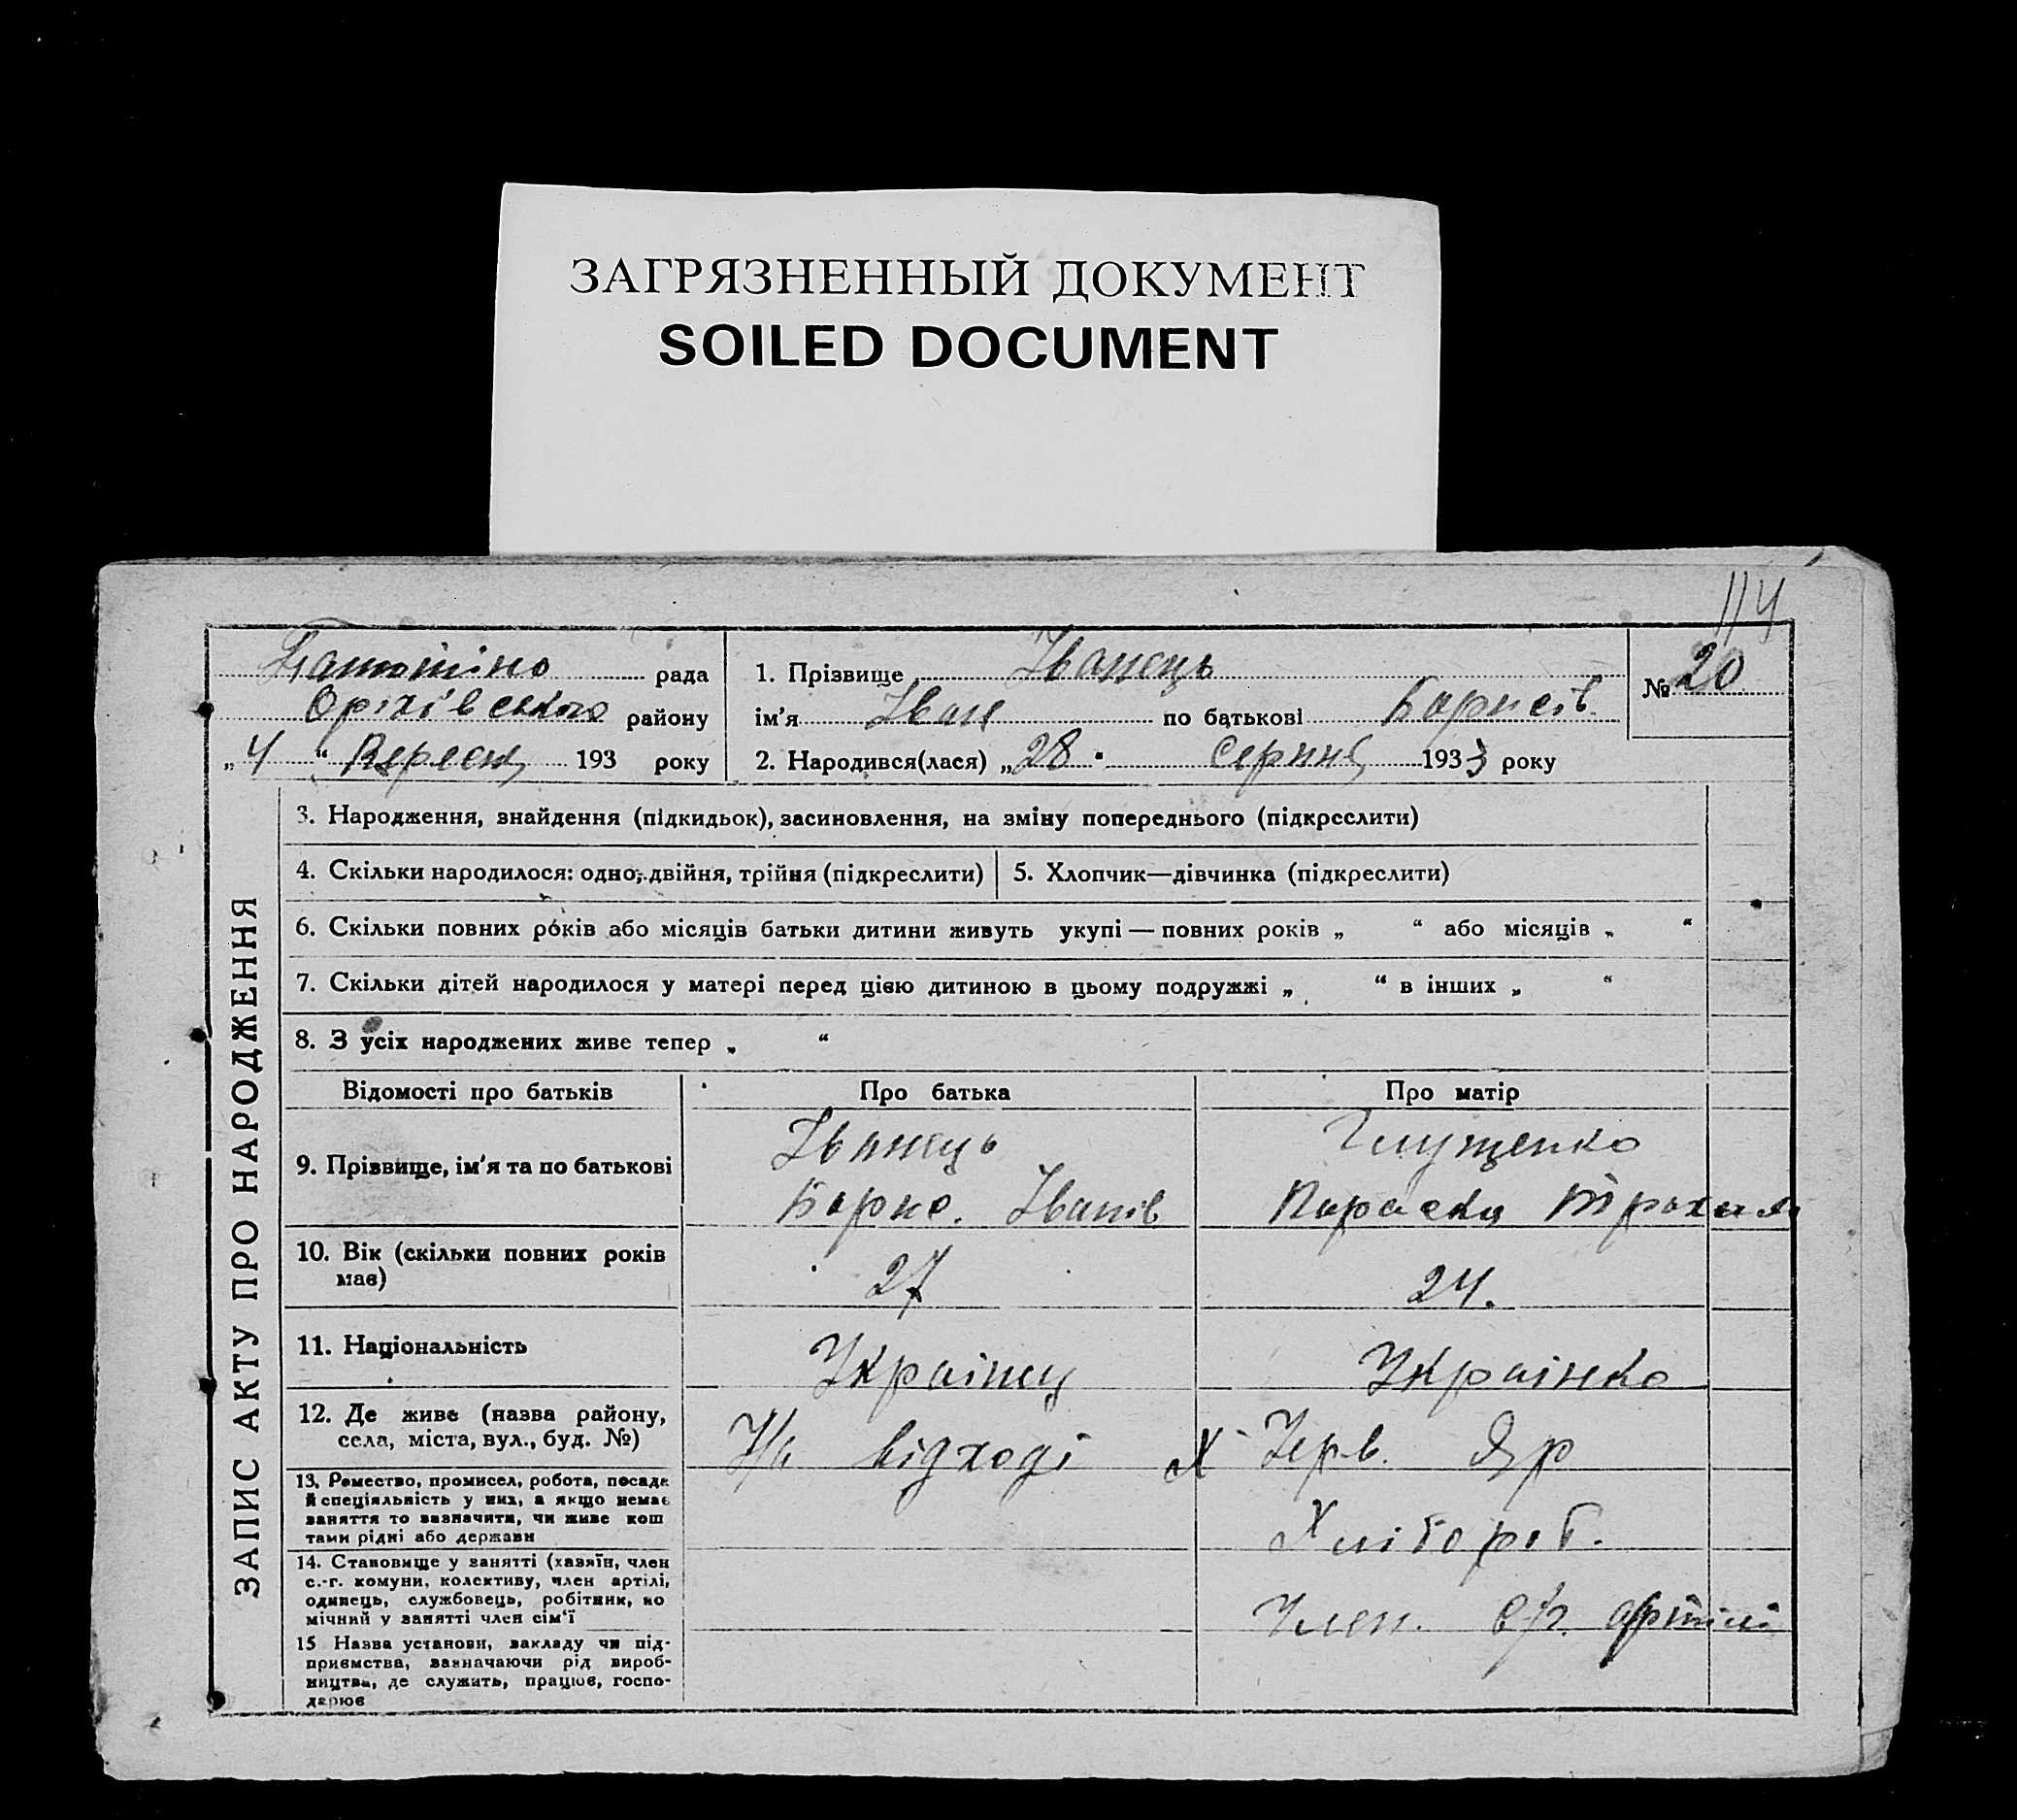 ЗАГРЯЗНЕННЫЙ ДОКУМЕНТ
SOILED DOCUMENT
114
рада
Оріхівського району
„4“ Вересня 193 року
1. Прізвище Іванець
ім'я Іван по батькові Борисів.
2. Народився(лася) „28 Серпня 1933 року
№ 20
ЗАПИС АКТУ ПРО НАРОДЖЕННЯ
3. Народження, знайдення (підкидьок), засиновлення, на зміну попереднього (підкреслити)
4. Скільки народилося: одно, двійня, трійня (підкреслити)
5. Хлопчик—дівчинка (підкреслити)
6. Скільки повних років або місяців батьки дитини живуть укупі — повних років „ “ або місяців „ “
7. Скільки дітей народилося у матері перед цією дитиною в цьому подружжі „ “ в інших „ “
8. З усіх народжених живе тепер „ “
Відомості про батьків
Про батька
Про матір
9. Прізвище, ім'я та по батькові
Іванець
Борис. Іванів
Глущенко
Параска Трохим
10. Вік (скільки повних років
має)
27
24.
11. Національність
Українец
Українка
12. Де живе (назва району,
села, міста, вул., буд. №)
На відході
х Черв. Яр
13. Ремество, промисел, робота, посада
й спеціяльність у них, а якщо немає
заняття то зазначити, чи живе кош
тами рідні або держави
Хлібороб.
14. Становище у занятті (хазяїн, член
с.-г. комуни, колективу, член артілі,
одинець, службовець, робітник, по
мічний у занятті член сім'ї
Член. с/г. артілі
15 Назва установи, закладу чи під-
приємства, зазначаючи рід вироб-
ництва, де служить, працює, госпо-
дарює